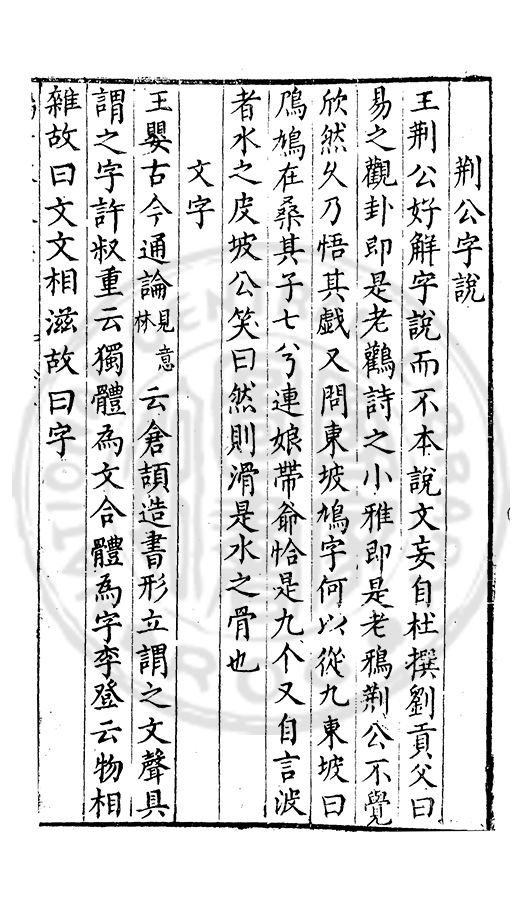 荆公字說
王荆公好解字說而不本說文妄自杜撰劉貢父曰
易之觀卦即是老鸛詩之小雅即是老鴉荆公不覺
欣然久乃悟其戯又問東坡鳩字何以從九東坡曰
鳲鳩在桑其子七兮連娘帶爺恰是九个又自言波
者水之皮坡公笑曰然則滑是水之骨也
文字
王嬰古今通論見意林云倉頡造書形立謂之文聲具
謂之字許叔重云獨體為文合體為字李登云物相
雜故曰文文相滋故曰字